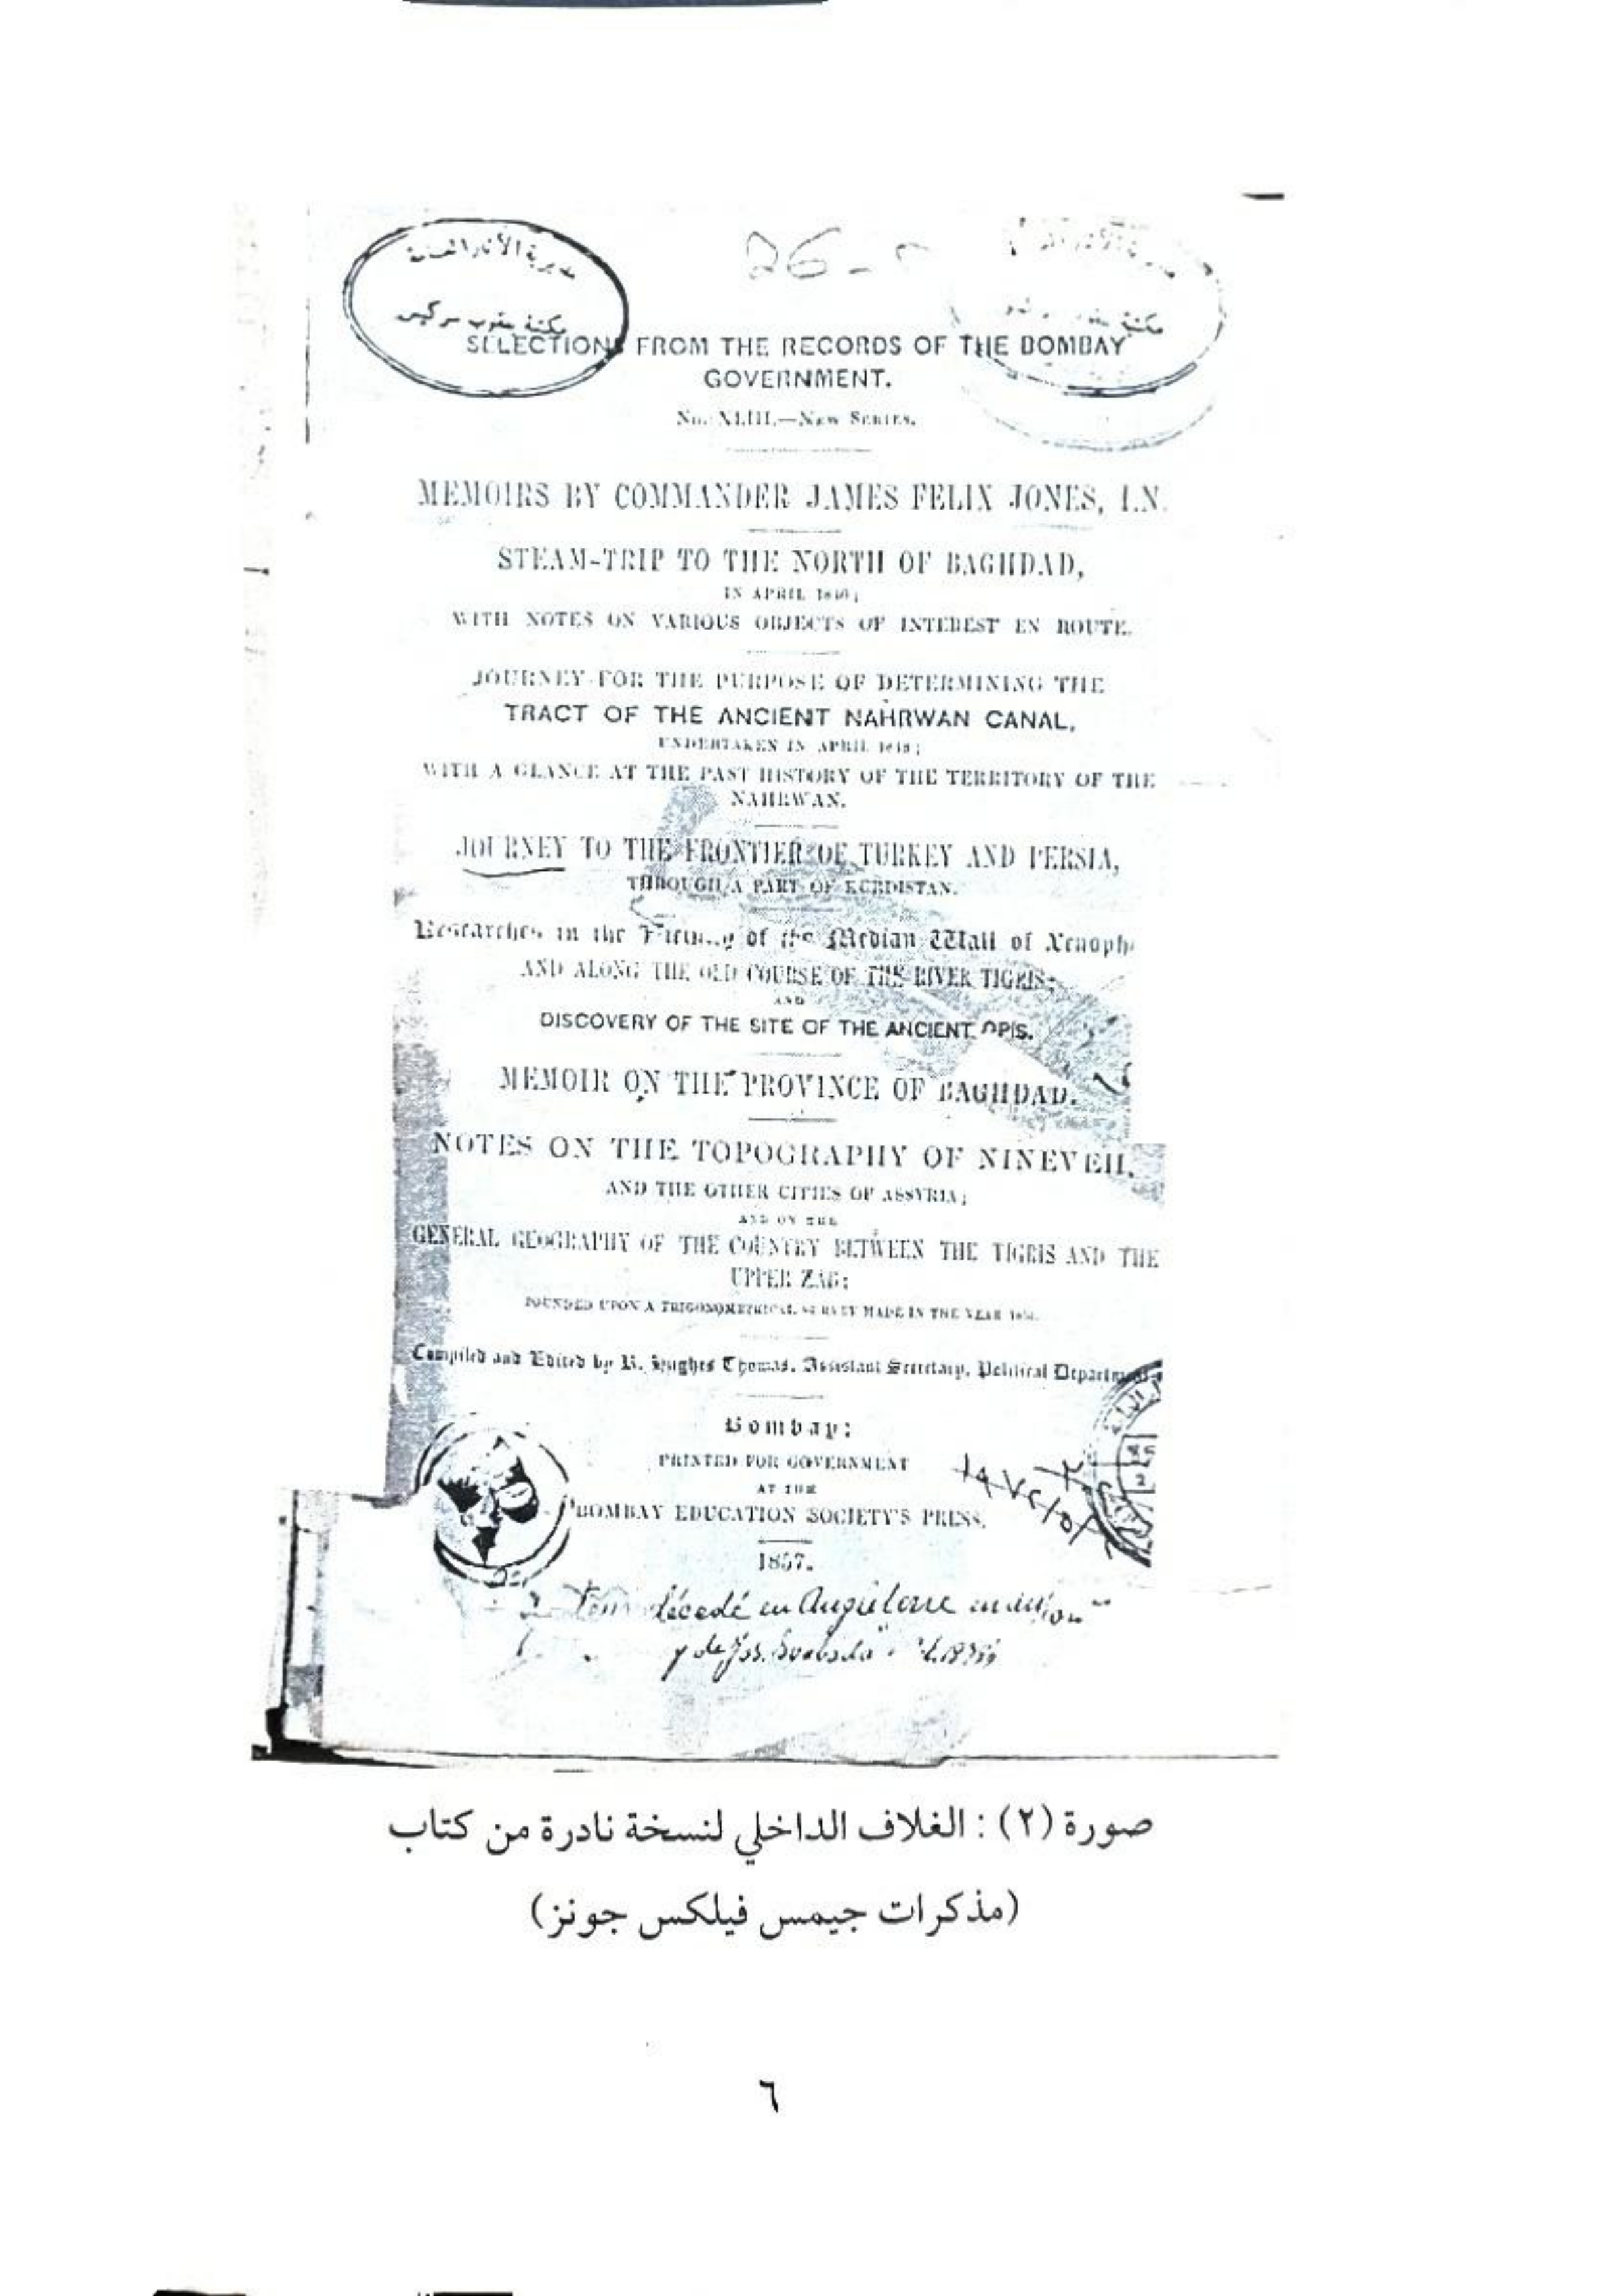 مديرية الآثار العامة
مكتبة يعقوب سركيس
26
مكتبة
SELECTIONS FROM THE RECORDS OF THE BOMBAY
GOVERNMENT.
No. XLIII.—New Series.
MEMOIRS BY COMMANDER JAMES FELIX JONES, I.N.
STEAM-TRIP TO THE NORTH OF BAGHDAD,
IN APRIL 1846;
WITH NOTES ON VARIOUS OBJECTS OF INTEREST EN ROUTE.
JOURNEY FOR THE PURPOSE OF DETERMINING THE
TRACT OF THE ANCIENT NAHRWAN CANAL,
UNDERTAKEN IN APRIL 1848;
WITH A GLANCE AT THE PAST HISTORY OF THE TERRITORY OF THE
NAHRWAN.
JOURNEY TO THE FRONTIER OF TURKEY AND PERSIA,
THROUGH A PART OF KURDISTAN.
Researches in the Vicinity of the Median Wall of Xenoph
AND ALONG THE OLD COURSE OF THE RIVER TIGRIS;
AND
DISCOVERY OF THE SITE OF THE ANCIENT OPIS.
MEMOIR ON THE PROVINCE OF BAGHDAD.
NOTES ON THE TOPOGRAPHY OF NINEVEH,
AND THE OTHER CITIES OF ASSYRIA;
AND ON THE
GENERAL GEOGRAPHY OF THE COUNTRY BETWEEN THE TIGRIS AND THE
UPPER ZAB;
FOUNDED UPON A TRIGONOMETRICAL SURVEY MADE IN THE YEAR
Compiled and Edited by R. Hughes Thomas, Assistant Secretary, Political Department
Bombay:
PRINTED FOR GOVERNMENT
AT THE
BOMBAY EDUCATION SOCIETY'S PRESS.
1857.
décédé en Angleterre
صورة (٢) : الغلاف الداخلي لنسخة نادرة من كتاب
(مذكرات جيمس فيلكس جونز)
٦